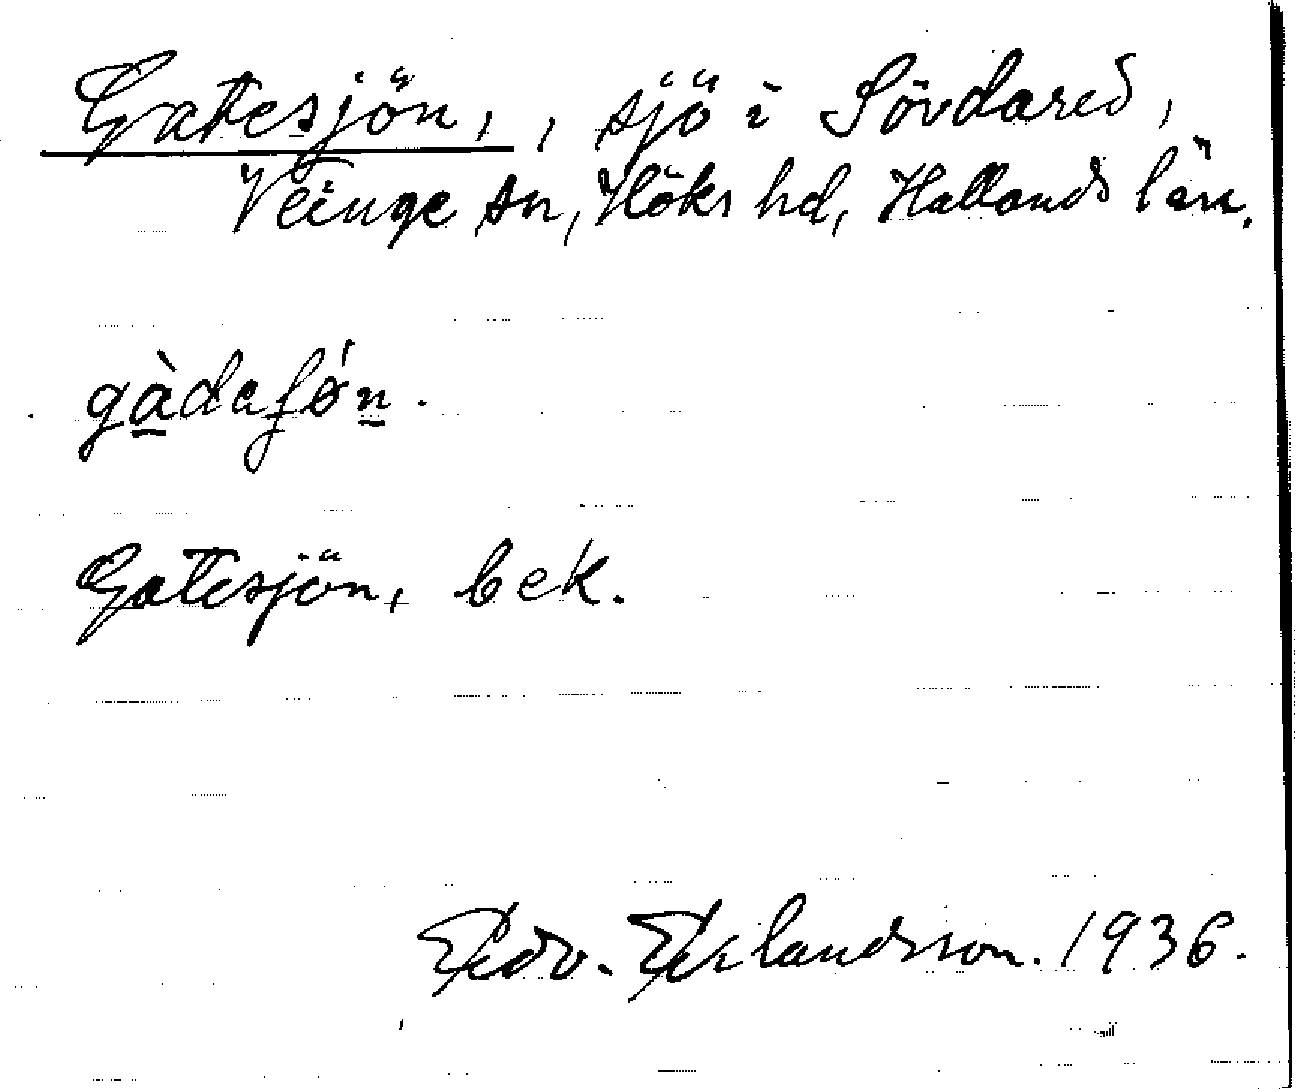 Gatesjön, , sjö i Sövdared,
Veinge sn, Höks hd, Hallands län.
gàdaʃǿn.
Gatesjön, bek.
Edv. Eklandsson. 1936.